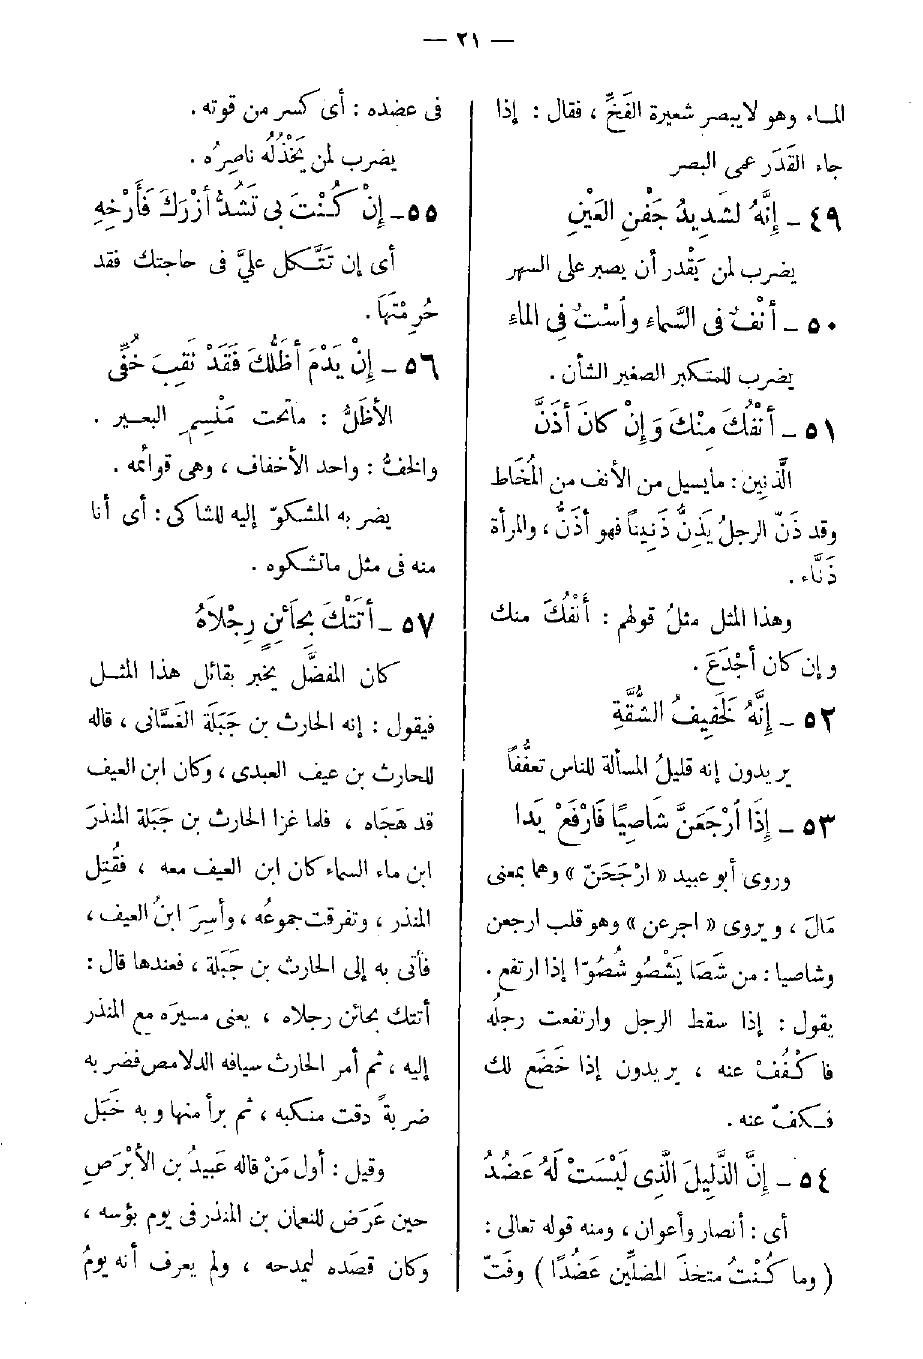 — ٢١ —
المـاء وهو لا يبصر شعيرة الفَخِّ ، فقال : إذا
جاء القَدَر عمى البصر
٤٩ ــ إِنَّهُ لَشَدِيدُ جَفْنِ العَيْنِ
يضرب لمن يَقْدر أن يصبر على السهر
٥٠ ــ أَنْفٌ فى السَّماء واُسْتٌ فى الماء
يضرب للمتكبر الصغير الشأن .
٥١ ــ أَنْفُكَ مِنْكَ وَإِنْ كانَ أَذَنَّ
الذَّنِين : مايسيل من الأنف من المُخَاط
وقد ذَنّ الرجلُ يَذِنُّ ذَنِيناً فهو أَذَنُّ ، والمرأة
ذَنَّاء .
وهذا المثل مثلُ قولهم : أَنْفُكَ منك
وإن كان أَجْدَعَ .
٥٢ ــ إِنَّهُ لَخَفِيفُ الشُّقَّةِ
يريدون إنه قليلُ المسألة للناس تعفُّفاً
٥٣ ــ إِذَا اُرْجَعَنَّ شَاصِيًا فَارْفَعْ يَدا
وروى أبو عبيد « ارْجَحَنّ » وهما بمعنى
مَالَ ، ويروى « اجرعن » وهو قلب ارجعن
وشاصيا : من شَصَا يَشْصُو شُصُوًا إذا ارتفع .
يقول : إذا سقط الرجل وارتفعت رجلُه
فاكْفُفْ عنه ، يريدون إذا خَضَع لك
فـكفَّ عنه .
٥٤ ــ إِنَّ الذَّلِيلَ الَّذِى لَيْسَتْ لَهُ عَضُدُ
أى : أنصار وأعوان ، ومنه قوله تعالى :
( وما كُنْتُ متخذَ المضلِّين عَضُدًا ) وفَتَّ
فى عضده : أى كسر من قوته .
يضرب لمن يَخْذُلُه ناصِرُه .
٥٥ــ إِنْ كُنْتَ بِى تَشُدُّ أَزْرَكَ فَأَرْخِهِ
أى إن تَتَّـكل علىَّ فى حاجتك فقد
حُرِمْتَهَا .
٥٦ ــ إِنْ يَدْمَ أَظَلُّكَ فَقَدْ نَقِبَ خُفِّى
الأظَلُّ : ماتحت مَنْسِمِ البعـير .
والخفُّ : واحد الأخفاف ، وهى قوائمه .
يضربه المشكوّ إليه للشاكى : أى أنا
منه فى مثل ماتشكوه .
٥٧ ــ أَتَتْكَ بِحَائِنٍ رِجْلاَهُ
كان المفضَّل يخبر بقائل هذا المثـل
فيقول : إنه الحارث بن جَبَلَة الغَسَّانى ، قاله
للحارث بن عيف العبدى ، وكان ابن العيف
قد هَجَاه ، فلما غزا الحارث بن جَبَلة المنذرَ
ابن ماء السماء كان ابن العيف معه ، فقُتِل
المنذر ، وتفرقت جموعُه ، وأُسِرَ ابنُ العيف ،
فأتى به إلى الحارث بن جَبَلة ، فعندها قال :
أتتك بحائن رجلاه ، يعنى مسيرَه مع المنذر
إليه ، ثم أمر الحارث سيافه الدلامص فضربه
ضربةً دقت منكبه ، ثم برأ منها وبه خَبَل
وقيل : أول مَنْ قاله عَبيدُ بن الأَبْرَصِ
حين عَرَض للنعمان بن المنذر فى يوم بؤسه ،
وكان قصَده ليمدحه ، ولم يعرف أنه يومُ